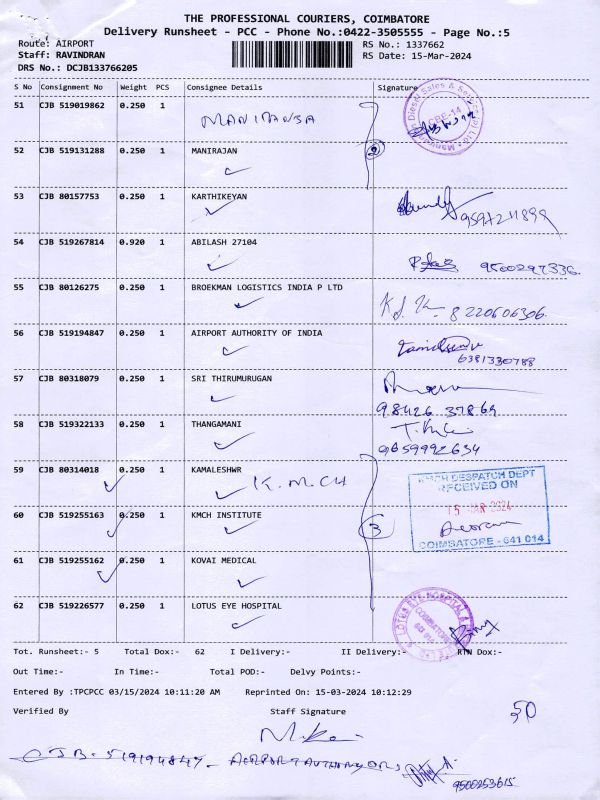 THE PROFESSIONAL COURIERS, COIMBATORE
Delivery Runsheet - PCC - Phone No.:0422-3505555 - Page No.:5
Route: AIRPORT
RS No.: 1337662
Staff: RAVINDRAN
RS Date: 15-Mar-2024
DRS No.: DCJB133766205
S No Consignment No Weight PCS Consignee Details Signature
51 CJB 519019862 0.250 1
52 CJB 519131288 0.250 1 MANIRAJAN
2
53 CJB 80157753 0.250 1 KARTHIKEYAN
54 CJB 519267814 0.920 1 ABILASH 27104
9500297336
55 CJB 80126275 0.250 1 BROEKMAN LOGISTICS INDIA P LTD
8220606306
56 CJB 519194847 0.250 1 AIRPORT AUTHORITY OF INDIA
6381330788
57 CJB 80318079 0.250 1 SRI THIRUMURUGAN
98426 37864
58 CJB 519322133 0.250 1 THANGAMANI
9659992634
59 CJB 80314018 0.250 1 KAMALESHWR
K.M.CH
KMCH DESPATCH DEPT
RECEIVED ON
15 MAR 2024
COIMBATORE - 641 014
60 CJB 519255163 0.250 1 KMCH INSTITUTE
3
61 CJB 519255162 0.250 1 KOVAI MEDICAL
62 CJB 519226577 0.250 1 LOTUS EYE HOSPITAL
LOTUS EYE HOSPITAL
COIMBATORE
641 014
Tot. Runsheet:- 5 Total Dox:- 62 I Delivery:- II Delivery:- RTN Dox:-
Out Time:- In Time:- Total POD:- Delvy Points:-
Entered By :TPCPCC 03/15/2024 10:11:20 AM Reprinted On: 15-03-2024 10:12:29
Verified By Staff Signature
50
CJB - 519194847 - AIRPORT AUTHORY ORS
9500253615